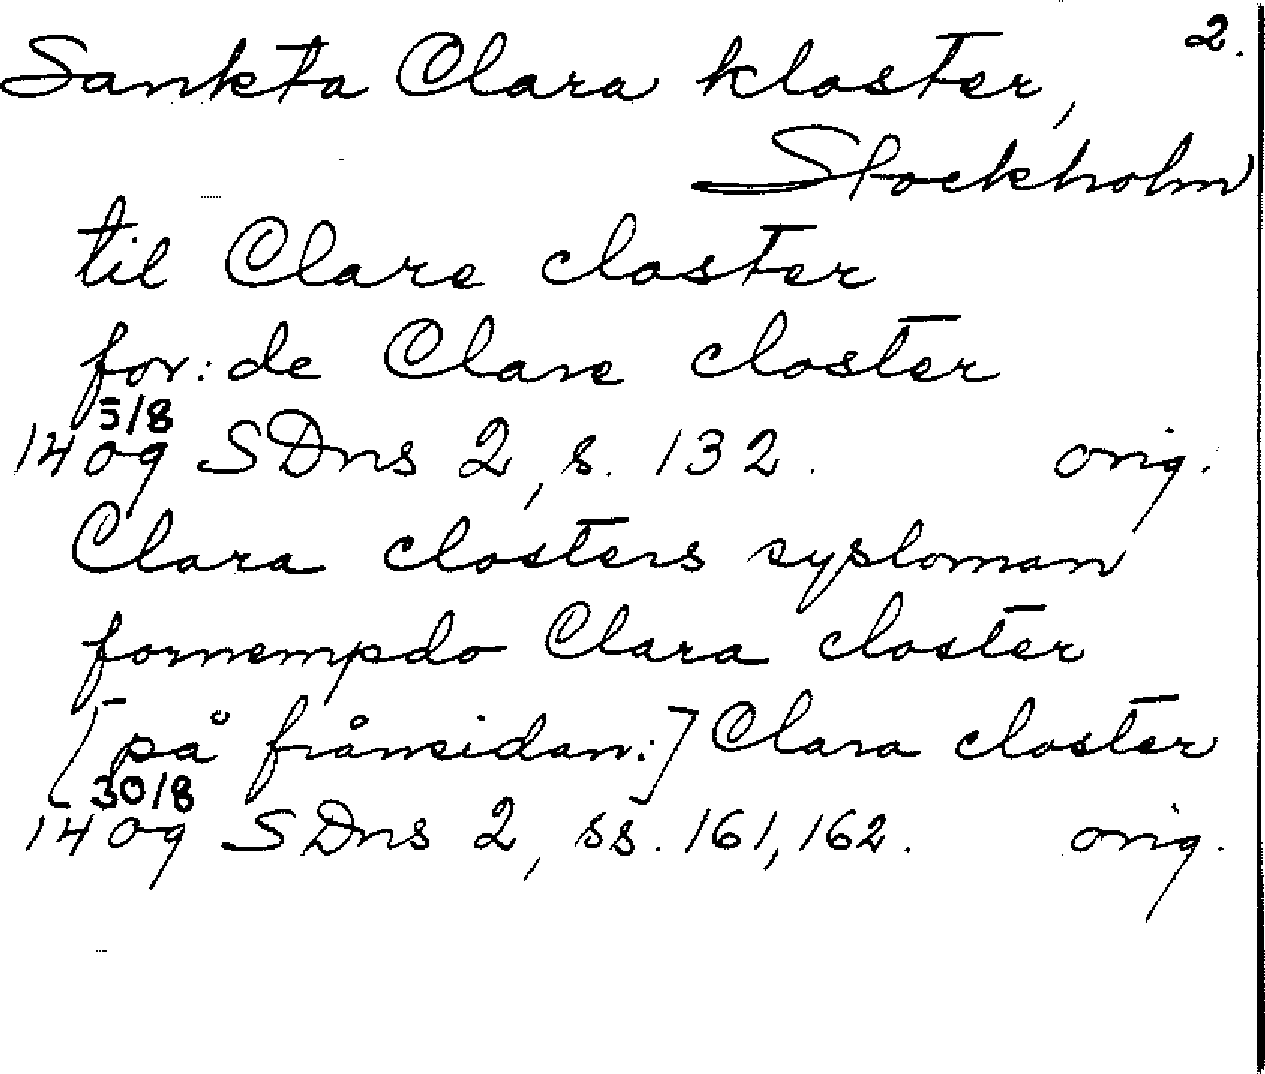 2.
Sankta Clara kloster,
Stockholm
til Clare closter
for:de Clare closter
5/8
1409 SDns 2, s. 132. orig.
Clara closters sysloman
fornempdo Clara closter
[på frånsidan:] Clara closter
30/8
1409 SDns 2, ss. 161, 162. orig.